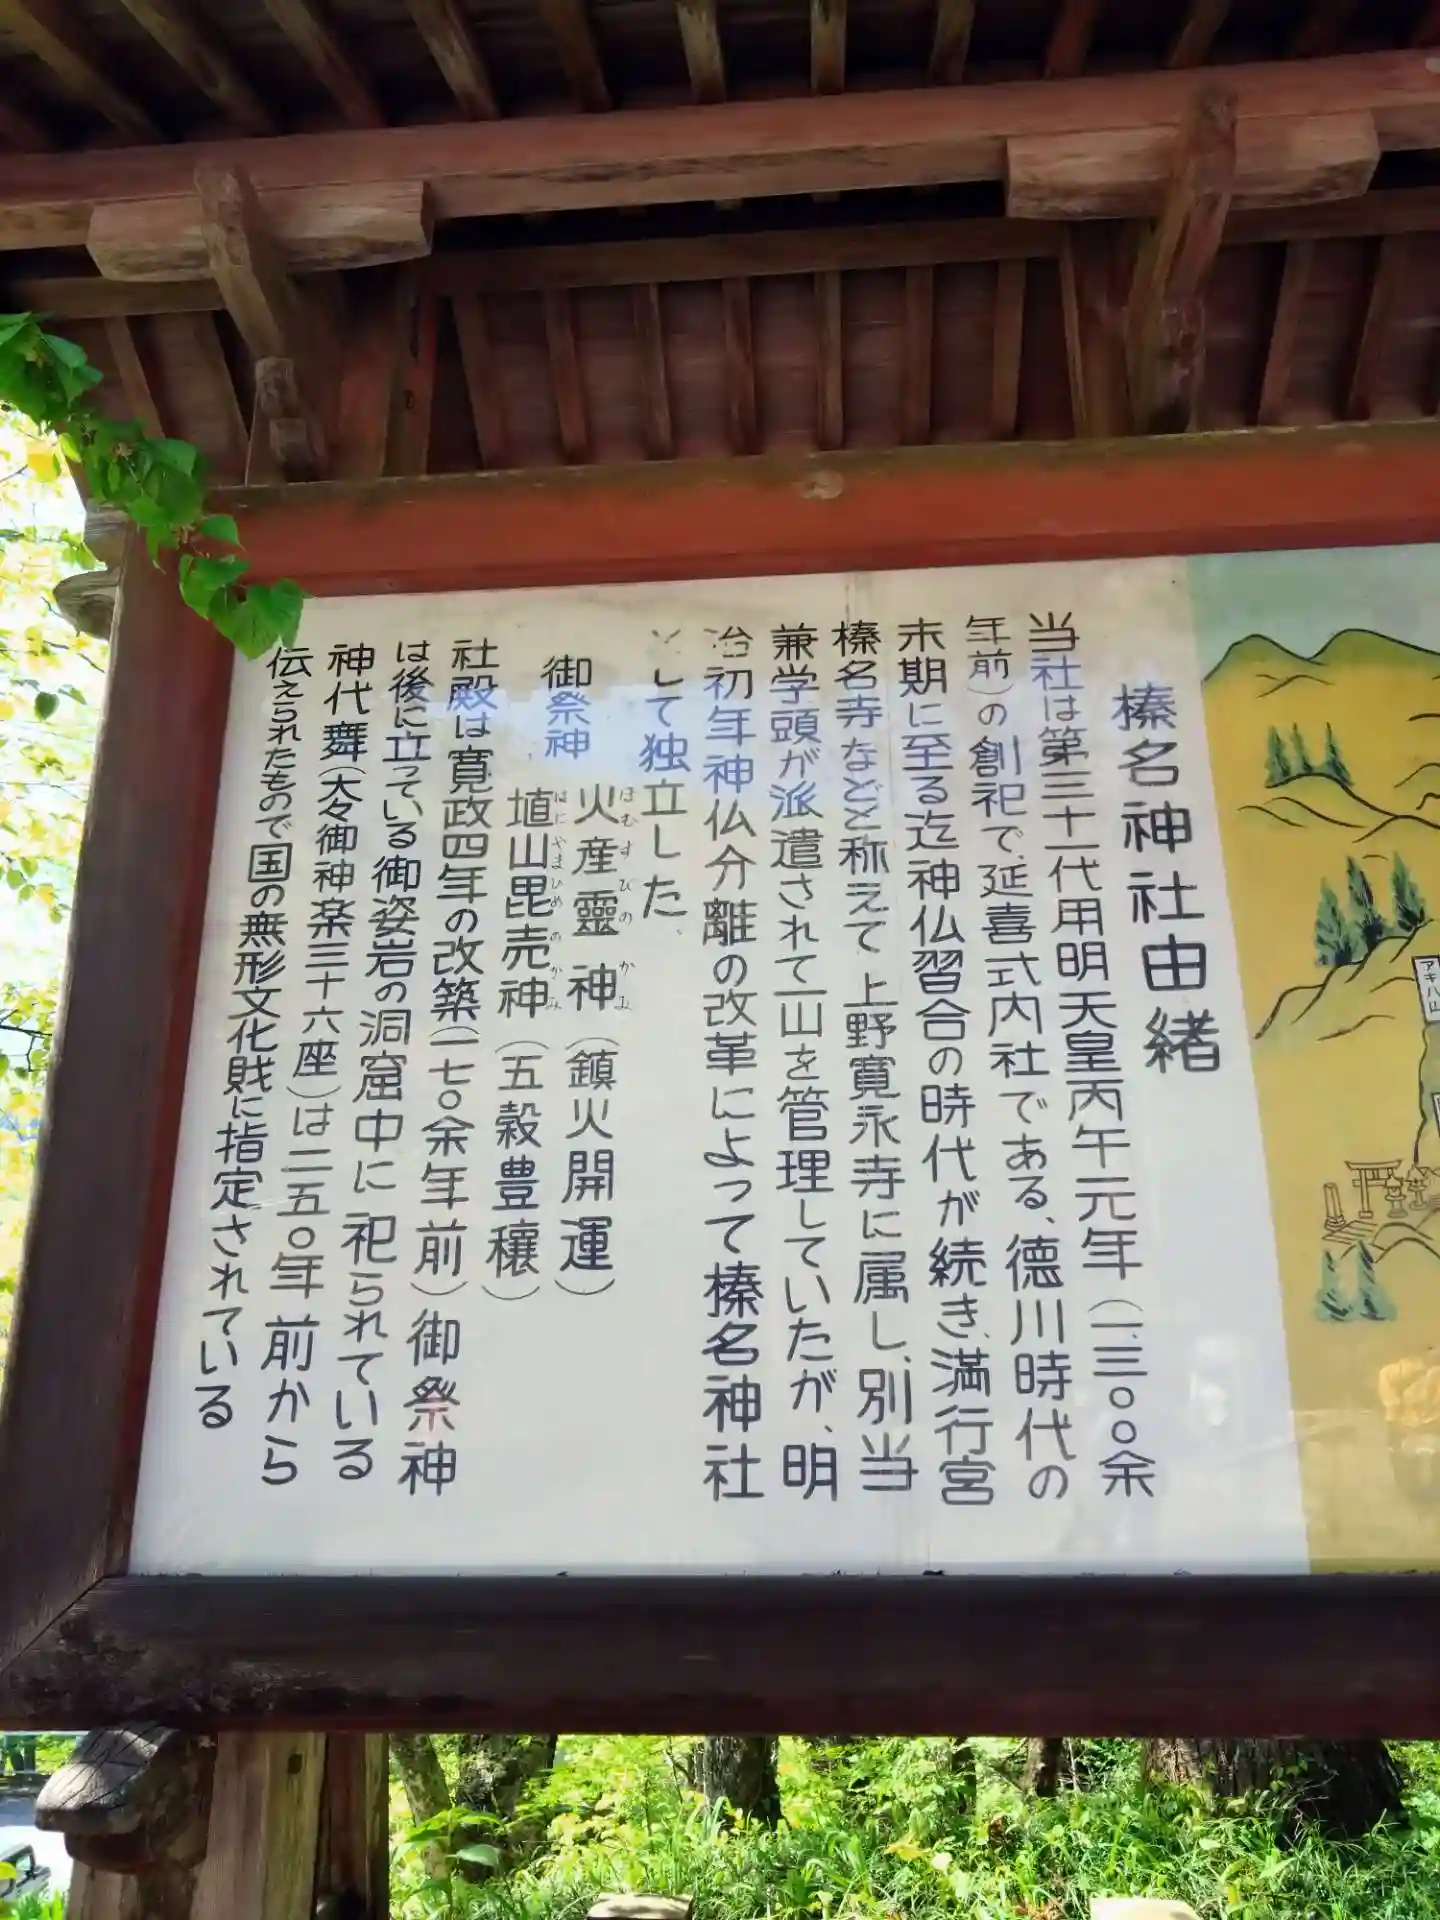 榛名神社由緒
当社は第三十一代用明天皇丙午元年（一、三〇〇余
年前）の創祀で、延喜式内社である、徳川時代の
末期に至る迄神仏習合の時代が続き、満行宮
榛名寺などと称えて上野寛永寺に属し、別当
兼学頭が派遣されて一山を管理していたが、明
治初年神仏分離の改革によって榛名神社
として独立した
御祭神 火産霊神（鎮火開運）
ほむすびのかみ
埴山毘売神（五穀豊穣）
はにやまひめのかみ
社殿は寛政四年の改築（一七〇余年前）御祭神
は後に立っている御姿岩の洞窟中に祀られている
神代舞（大々御神楽三十六座）は二五〇年前から
伝えられたもので国の無形文化財に指定されている
アキハ山